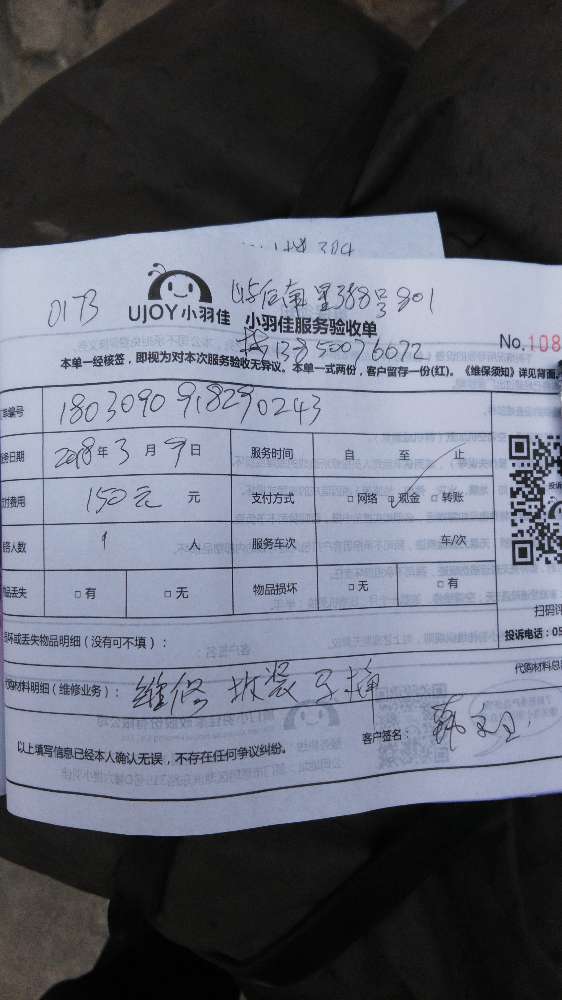 01TB
南星368号801
UJOY小羽佳 小羽佳服务验收单
13850076072
No.108
本单一经核签，即视为对本次服务验收无异议。本单一式两份，客户留存一份(红)。《维保须知》详见背面。
单编号 1803090918290243
务日期 2018年3月9日 服务时间 自 至 止
付费用 150元 元 支付方式 □网络 □现金 □转账
务人数 1 人 服务车次 车/次
品丢失 □有 □无 物品损坏 □无 □有
扫码评
坏或丢失物品明细（没有可不填）： 投诉电话：05
代购材料总
代购材料明细（维修业务）： 维修 拆装
客户签名：
以上填写信息已经本人确认无误，不存在任何争议纠纷。